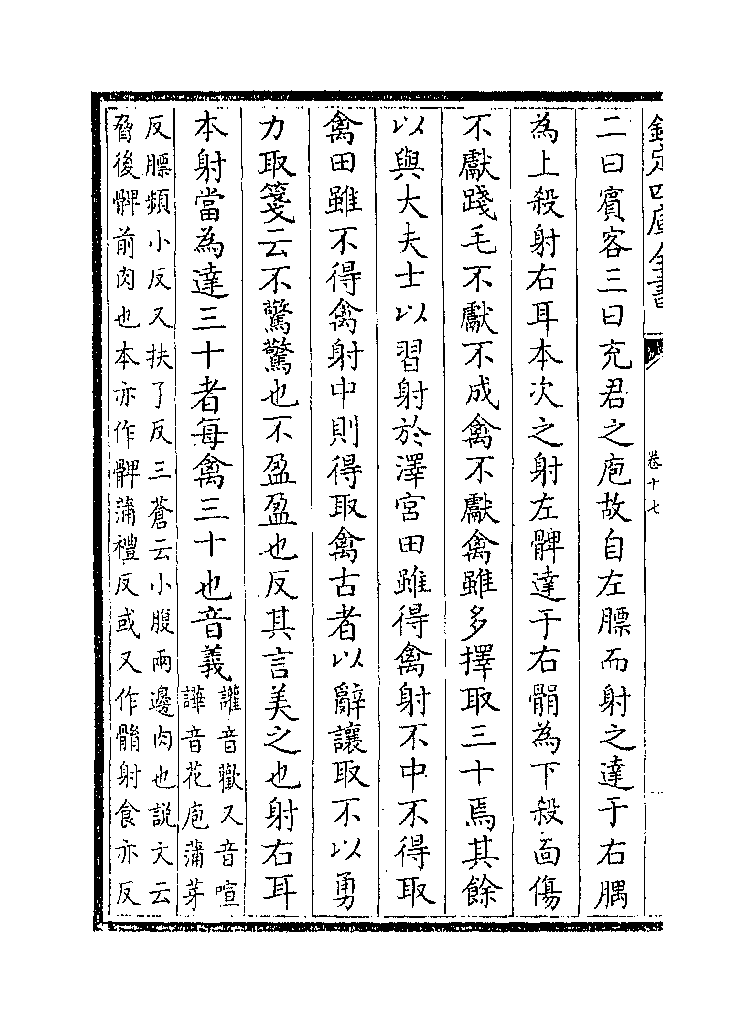 欽定四庫全書
卷十七
二曰賓客三曰充君之庖故自左膘而射之達于右腢
為上殺射右耳本次之射左髀達于右䯚為下殺面傷
不獻踐毛不獻不成禽不獻禽雖多擇取三十焉其餘
以與大夫士以習射於澤宮田雖得禽射不中不得取
禽田雖不得禽射中則得取禽古者以辭讓取不以勇
力取箋云不驚驚也不盈盈也反其言美之也射右耳
本射當為達三十者每禽三十也音義
讙音歡又音喧
譁音花庖蒲茅
反膘頻小反又扶了反三蒼云小腹兩邊肉也說文云
脅後髀前肉也本亦作髀蒲禮反或又作䯚射食亦反